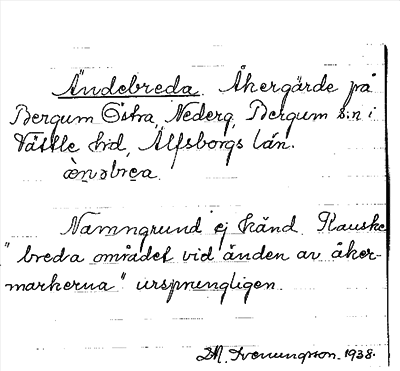 Ändebreda. Åkergärde på
Bergum Östra, Nederg, Bergum s:n i
Vättle hd, Älfsborgs län.
æ̀n̠əbre̠a.
Namngrund ej känd. Kanske
"breda området vid änden av åker-
markerna" ursprungligen.
M. Ivenungsson. 1938.